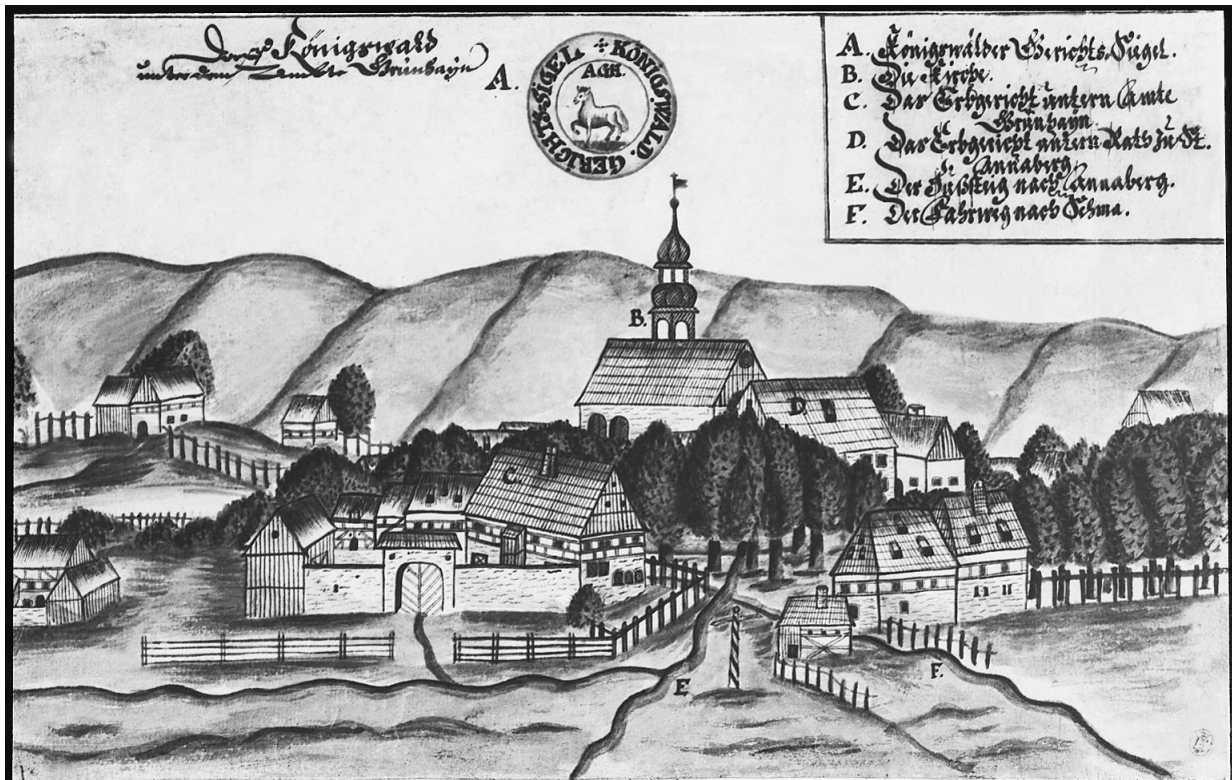 Dorff Königswald
unter dem Ambte Grünhayn
A.
KÖNIGSWALD. GERICHTS-SIGEL
AGH.
A. Königswälder Gerichts Sigel.
B. Die Kirche.
C. Das Erbgericht untern Amte
Grünhayn.
D. Das Erbgericht untern Rath zu St.
Annaberg.
E. Der Fußsteig nach Annaberg.
F. Der Fahrweg nach Sehma.
B.
D
C
E
F.